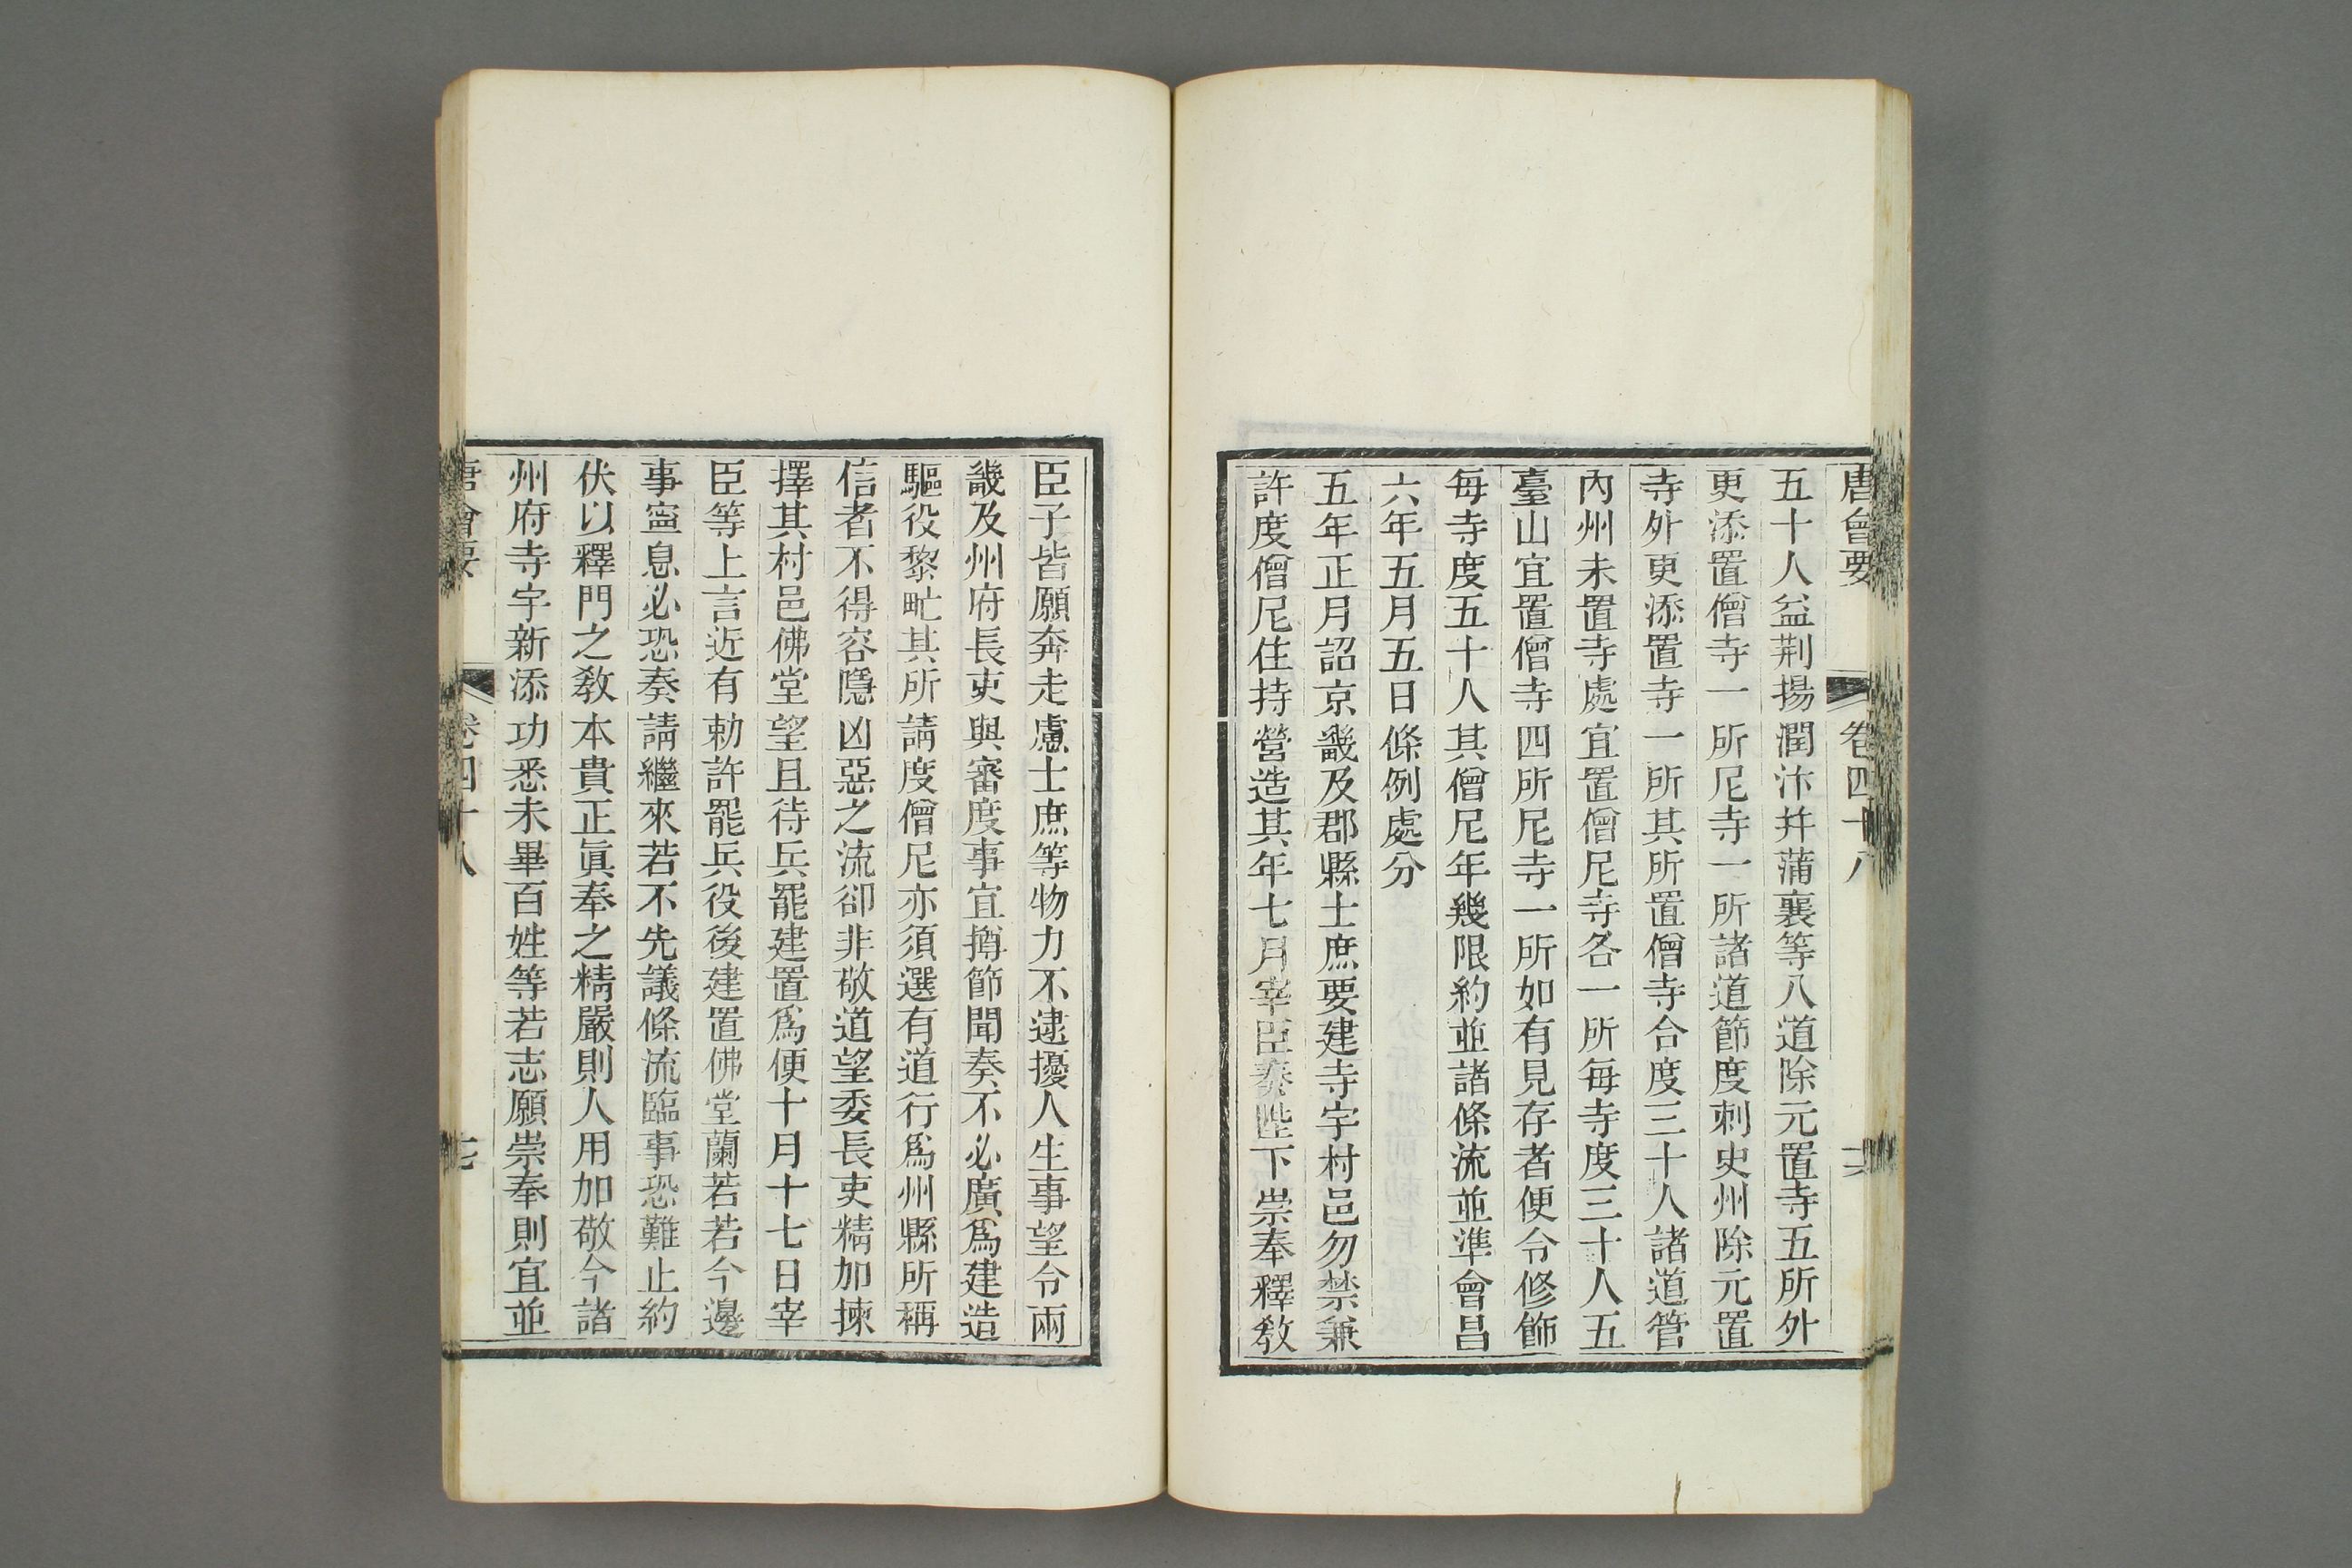 唐會要 卷四十八 十六
五十人益荆揚潤汴幷蒲襄等八道除元置寺五所外
更添置僧寺一所尼寺一所諸道節度刺史州除元置
寺外更添置寺一所其所置僧寺合度三十人諸道管
內州未置寺處宜置僧尼寺各一所每寺度三十人五
臺山宜置僧寺四所尼寺一所如有見存者便令修飾
每寺度五十人其僧尼年幾限約並諸條流並準會昌
六年五月五日條例處分
五年正月詔京畿及郡縣士庶要建寺宇村邑勿禁兼
許度僧尼住持營造其年七月宰臣奏陛下崇奉釋敎
臣子皆願奔走慮士庶等物力不逮擾人生事望令兩
畿及州府長吏與審度事宜撙節聞奏不必廣爲建造
驅役黎甿其所請度僧尼亦須選有道行爲州縣所稱
信者不得容隱凶惡之流卻非敬道望委長吏精加揀
擇其村邑佛堂望且待兵罷建置爲便十月十七日宰
臣等上言近有勅許罷兵役後建置佛堂蘭若若今邊
事寧息必恐奏請繼來若不先議條流臨事恐難止約
伏以釋門之敎本貴正眞奉之精嚴則人用加敬今諸
州府寺宇新添功悉未畢百姓等若志願崇奉則宜並
唐會要 卷四十八 十七